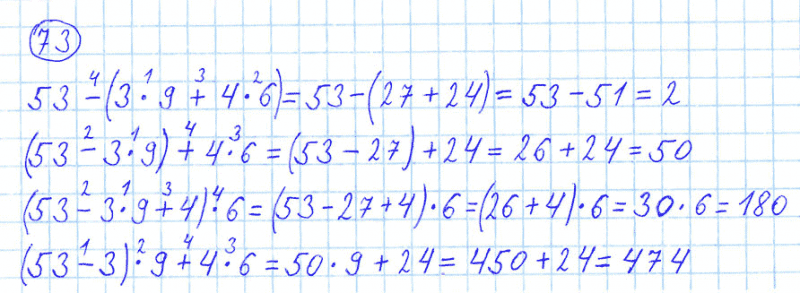 73
53 - (3 · 9 + 4 · 6) = 53 - (27 + 24) = 53 - 51 = 2
(53 - 3 · 9) + 4 · 6 = (53 - 27) + 24 = 26 + 24 = 50
(53 - 3 · 9 + 4) · 6 = (53 - 27 + 4) · 6 = (26 + 4) · 6 = 30 · 6 = 180
(53 - 3) · 9 + 4 · 6 = 50 · 9 + 24 = 450 + 24 = 474